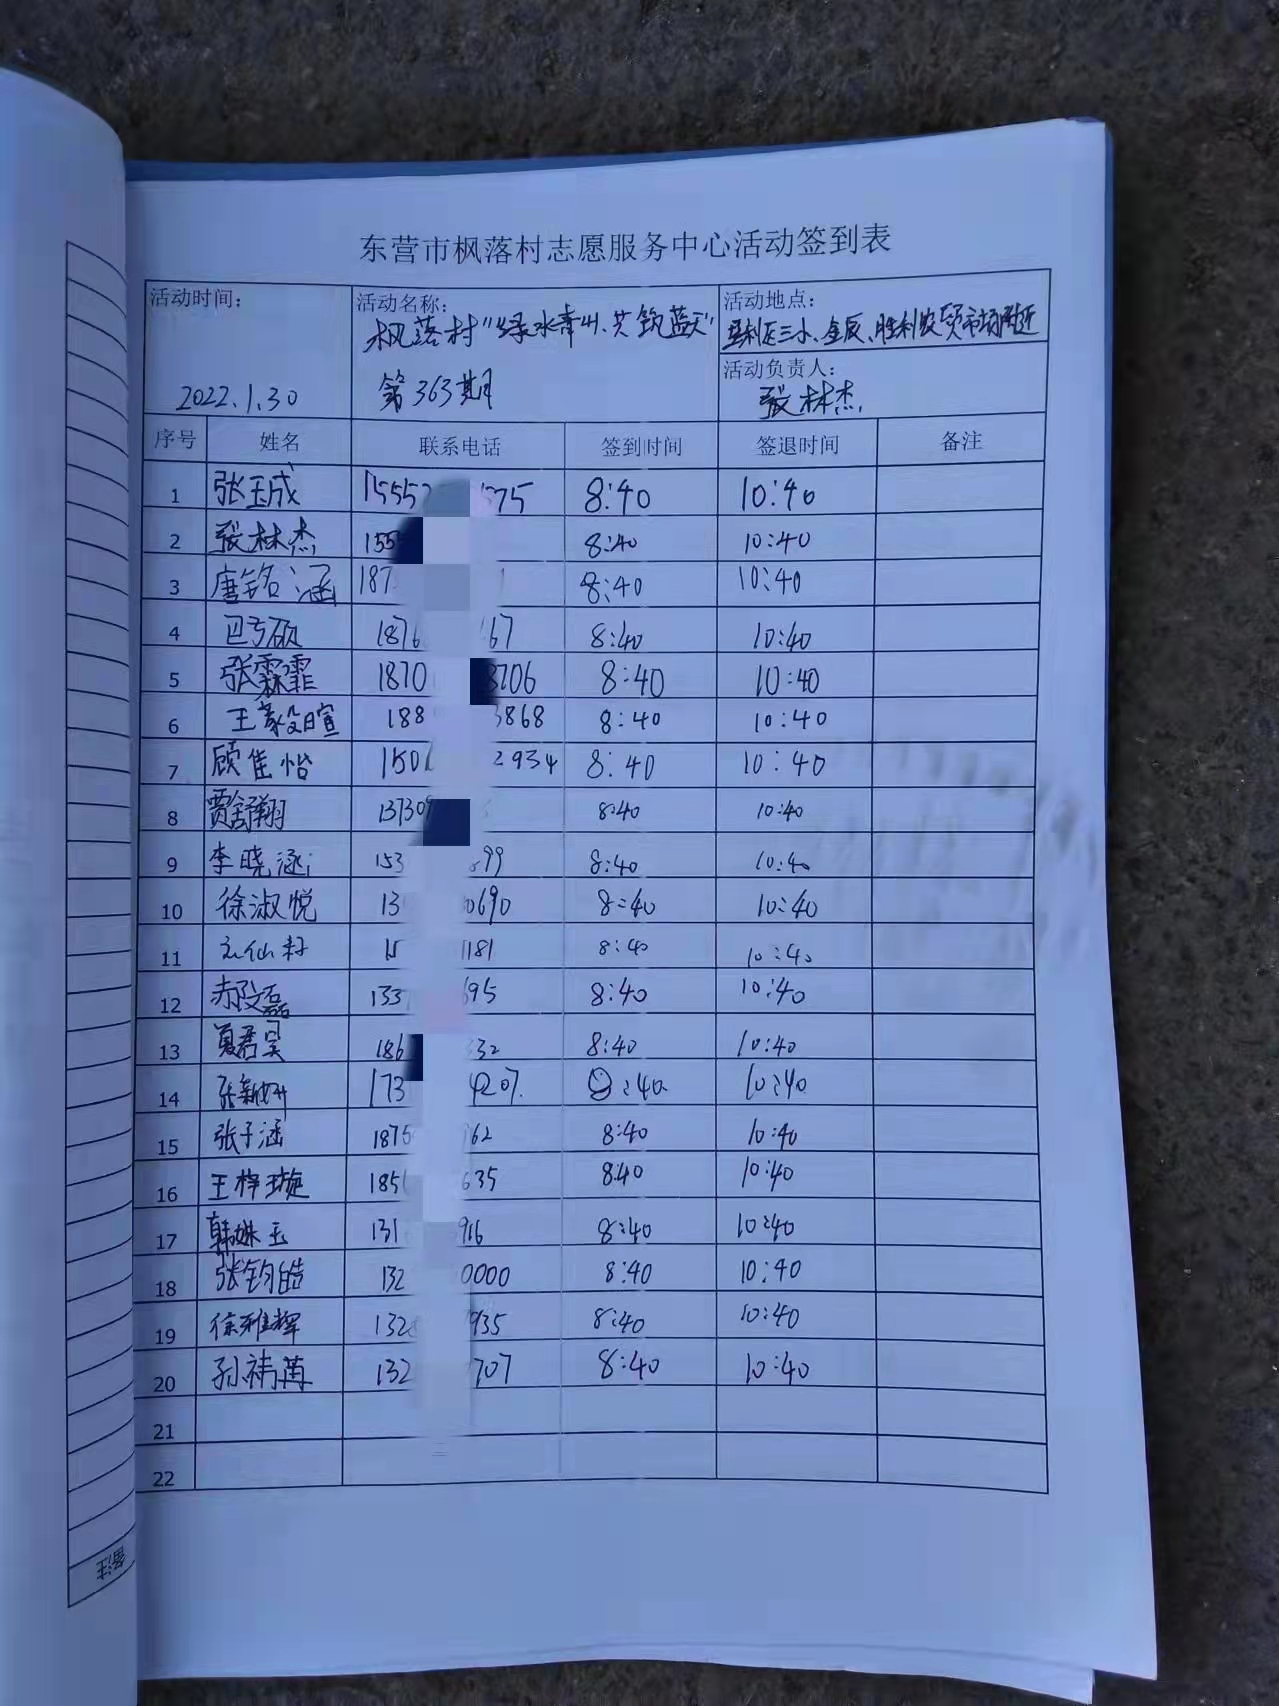 东营市枫落村志愿服务中心活动签到表
活动时间：
2022.1.30
活动名称：
枫落村“绿水青山、共筑蓝天”
第363期
活动地点：
垦利区三小、金辰、胜利农贸市场附近
活动负责人：
张林杰
序号 姓名 联系电话 签到时间 签退时间 备注
1 张玉成 15552 575 8:40 10:40
2 张林杰 155 8:40 10:40
3 唐铭涵 187 8:40 10:40
4 1876 67 8:40 10:40
5 张霖霏 1870 8706 8:40 10:40
6 王 暄 188 3868 8:40 10:40
7 顾隹怡 150 2934 8:40 10:40
8 贾舒翔 13730 8:40 10:40
9 李晓涵 153 899 8:40 10:40
10 徐淑悦 13 0690 8:40 10:40
11 15 1181 8:40 10:40
12 133 695 8:40 10:40
13 夏君昊 186 332 8:40 10:40
14 张新妍 173 4207. 8:40 10:40
15 张子涵 1875 162 8:40 10:40
16 王梓璇 185 635 8:40 10:40
17 韩姝玉 131 916 8:40 10:40
18 张钧皓 132 0000 8:40 10:40
19 徐雅辉 132 935 8:40 10:40
20 孙祎苒 132 707 8:40 10:40
21
22
备注